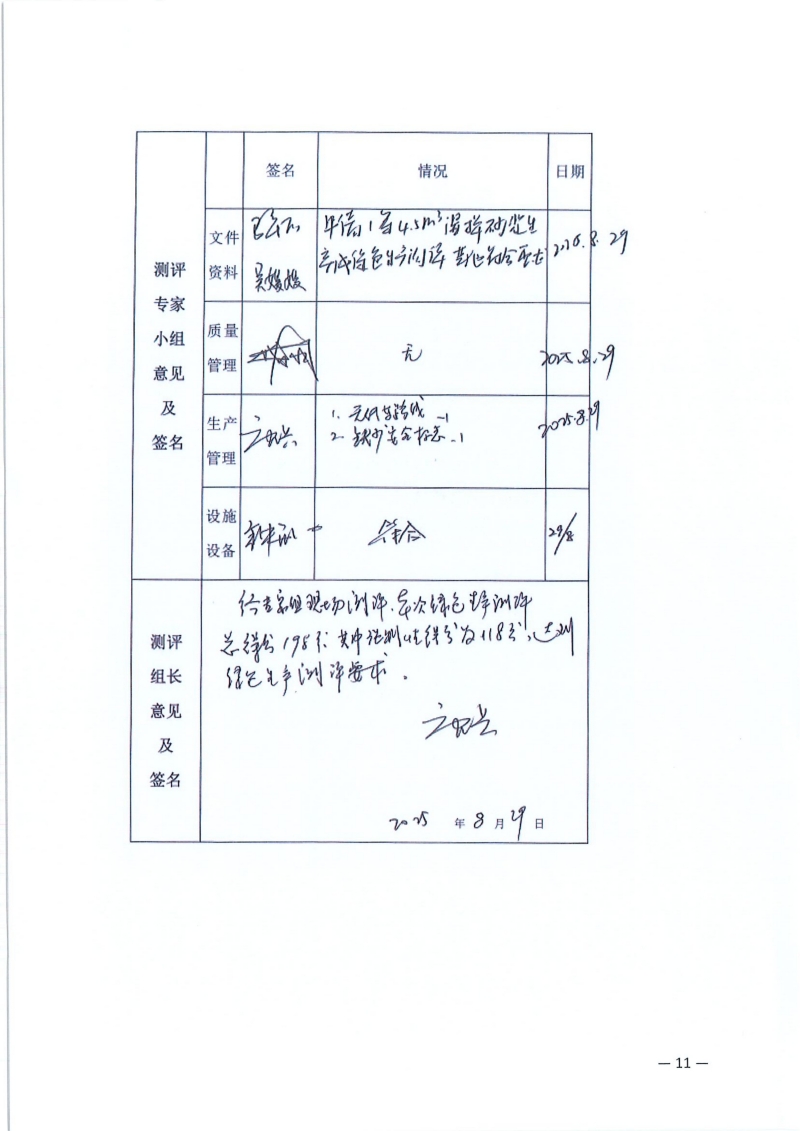 签名 情况 日期
测评
专家
小组
意见
及
签名
文件
资料
吴媛媛
申请1台4.5m³混凝土
其他符合要求
2025.8.29
质量
管理
无
2025.8.29
生产
管理
1. -1
2. 缺少安全标志 -1
2025.8.29
设施
设备
符合
29/8
测评
组长
意见
及
签名
经专家组现场测评,本次绿色生产测评
总得分195分,其中控制性得分为118分,达到
绿色生产测评要求。
2025 年 8 月 29 日
— 11 —